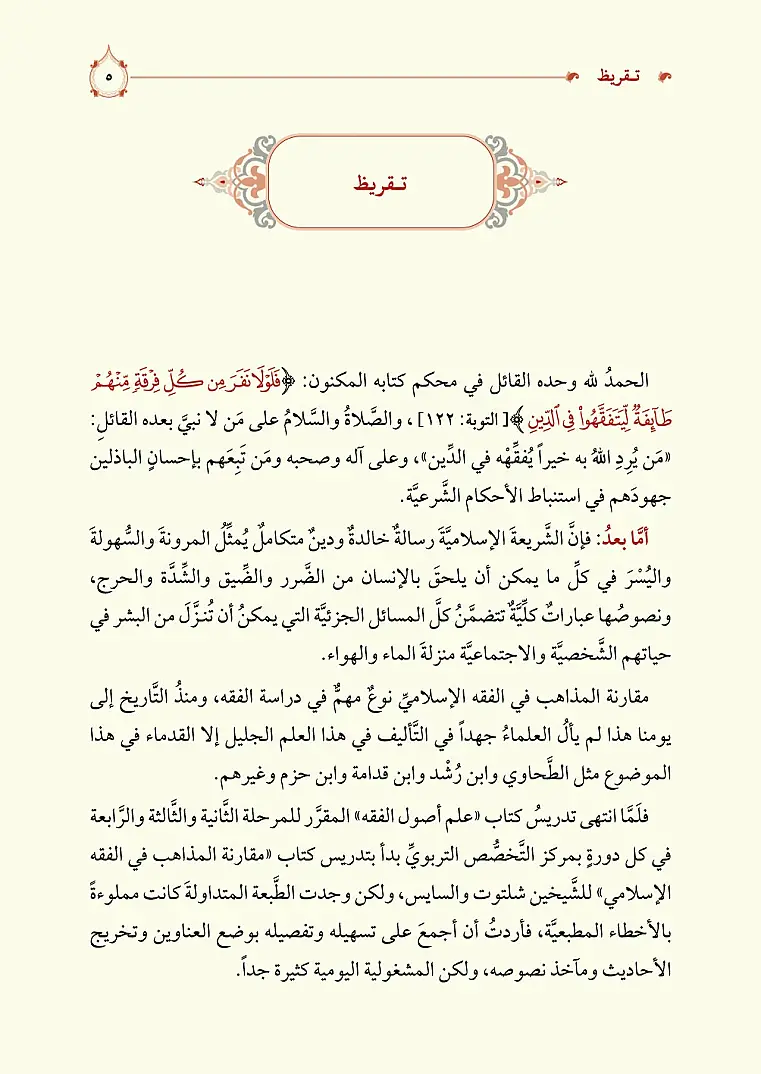 تـقريظ
٥
تـقريظ
الحمدُ لله وحده القائل في محكم كتابه المكنون: ﴿فَلَوْلَا نَفَرَ مِن كُلِّ فِرْقَةٍ مِّنْهُمْ
طَآئِفَةٌ لِّيَتَفَقَّهُوا۟ فِي ٱلدِّينِ﴾[التوبة: ١٢٢]، والصَّلاةُ والسَّلامُ على مَن لا نبيَّ بعده القائلِ:
«مَن يُرِدِ اللهُ به خيراً يُفقِّهْه في الدِّين»، وعلى آله وصحبه ومَن تَبِعَهم بإحسانٍ الباذلين
جهودَهم في استنباط الأحكام الشَّرعيَّة.
أمَّا بعدُ: فإنَّ الشَّريعةَ الإسلاميَّةَ رسالةٌ خالدةٌ ودينٌ متكاملٌ يُمثِّلُ المرونةَ والسُّهولةَ
واليُسْرَ في كلِّ ما يمكن أن يلحقَ بالإنسان من الضَّرر والضِّيق والشِّدَّة والحرج،
ونصوصُها عباراتٌ كلِّيَّةٌ تتضمَّنُ كلَّ المسائل الجزئيَّة التي يمكنُ أن تُنـزَّلَ من البشر في
حياتهم الشَّخصيَّة والاجتماعيَّة منزلةَ الماء والهواء.
مقارنة المذاهب في الفقه الإسلاميِّ نوعٌ مهمٌّ في دراسة الفقه، ومنذُ التَّاريخ إلى
يومنا هذا لم يألُ العلماءُ جهداً في التَّأليف في هذا العلم الجليل إلا القدماء في هذا
الموضوع مثل الطَّحاوي وابن رُشْد وابن قدامة وابن حزم وغيرهم.
فلَمَّا انتهى تدريسُ كتاب «علم أصول الفقه» المقرَّر للمرحلة الثَّانية والثَّالثة والرَّابعة
في كل دورةٍ بمركز التَّخصُّص التربويِّ بدأ بتدريس كتاب «مقارنة المذاهب في الفقه
الإسلامي» للشَّيخين شلتوت والسايس، ولكن وجدت الطَّبعة المتداولةَ كانت مملوءةً
بالأخطاء المطبعيَّة، فأردتُ أن أجمعَ على تسهيله وتفصيله بوضع العناوين وتخريج
الأحاديث ومآخذ نصوصه، ولكن المشغولية اليومية كثيرة جداً.